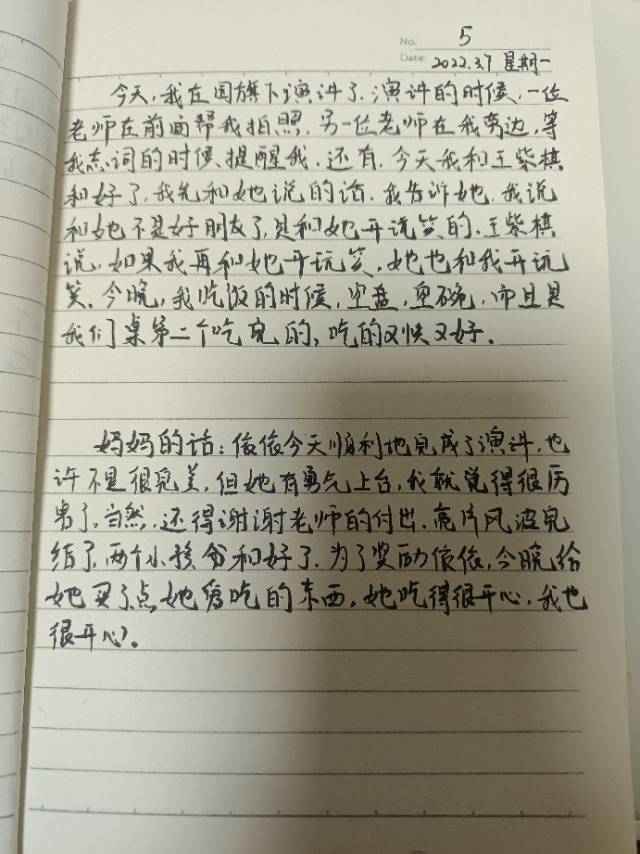 No. 5
Date: 2022.3.7 星期一
今天,我在国旗下演讲了.演讲的时候,一位
老师在前面帮我拍照.另一位老师在我旁边,等
我忘词的时候,提醒我.还有,今天我和王紫棋
和好了,我先和她说的话.我告诉她,我说
和她不是好朋友了,是和她开玩笑的.王紫棋
说,如果我再和她开玩笑,她也和我开玩
笑.今晚,我吃饭的时候,空盘,空碗,而且是
我们桌第二个吃完的,吃的又快又好.
妈妈的话:依依今天顺利地完成了演讲,也
许不是很完美,但她有勇气上台,我就觉得很厉
害了.当然,还得谢谢老师的付出.亮片风波完
结了,两个小孩和好了.为了奖励依依,今晚给
她买了点她爱吃的东西,她吃得很开心,我也
很开心.